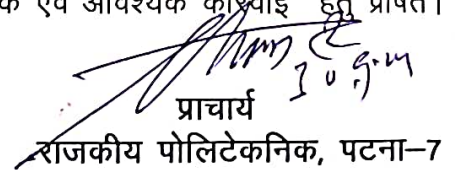 क एवं आवश्यक कार्रवाई हेतु प्रेषित।
प्राचार्य
राजकीय पोलिटेकनिक, पटना–7